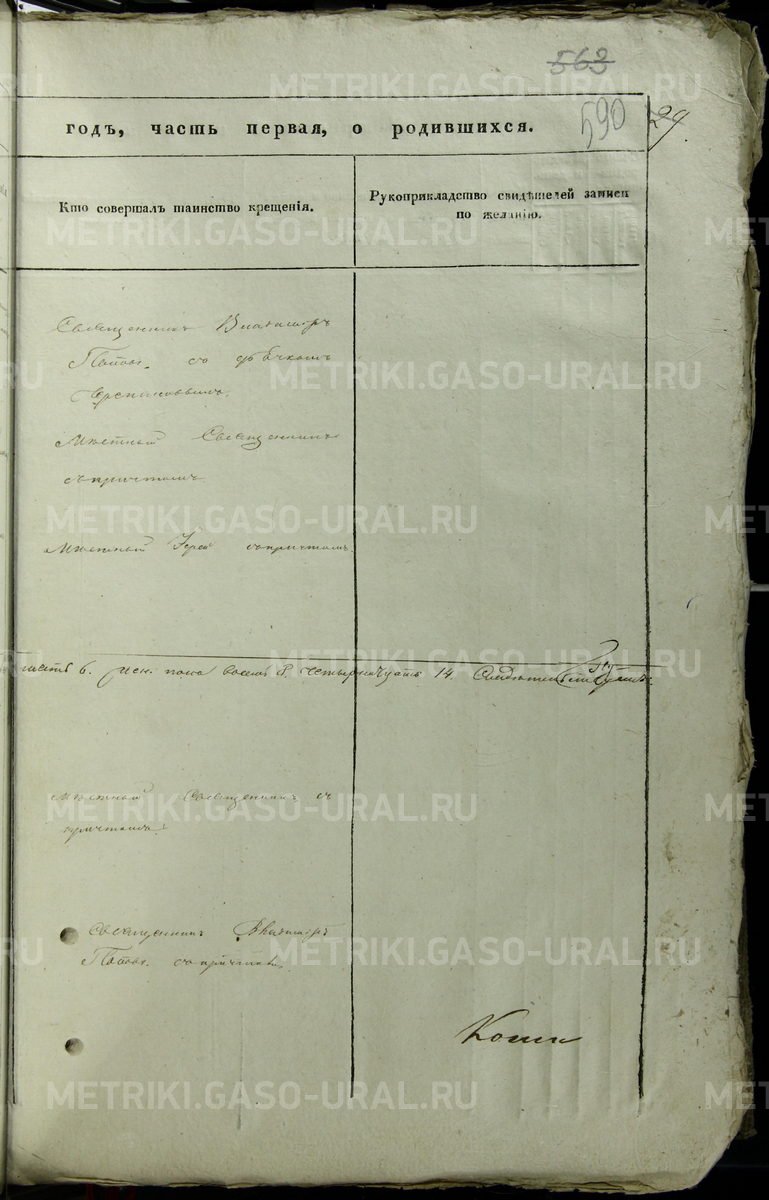 563
590
29.
годъ, часть первая, о родившихся.
Кто совершалъ таинство крещенія.
Рукоприкладство свидѣтелей записи
по желанію.
Священникъ Владимiръ
Поповъ. со дьячкомъ
Мѣстный Священникъ
съ причтомъ
Мѣстный Іерей съ причтомъ
6. восемь 8. четырнадцать 14.
Мѣстный Священникъ съ
причтомъ.
Священникъ Владимiръ
Поповъ. съ причтомъ.
METRIKI.GASO-URAL.RU